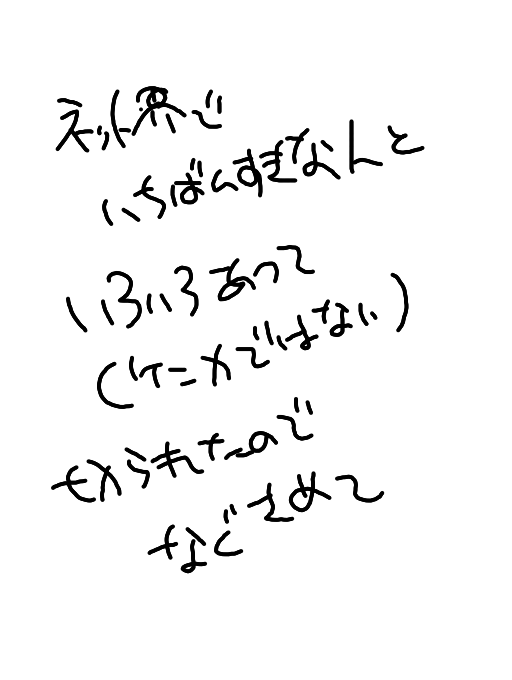 ネット界で
いちばんすきな人と
いろいろあって
(ケニメではない)
せられたので
なぐさめて